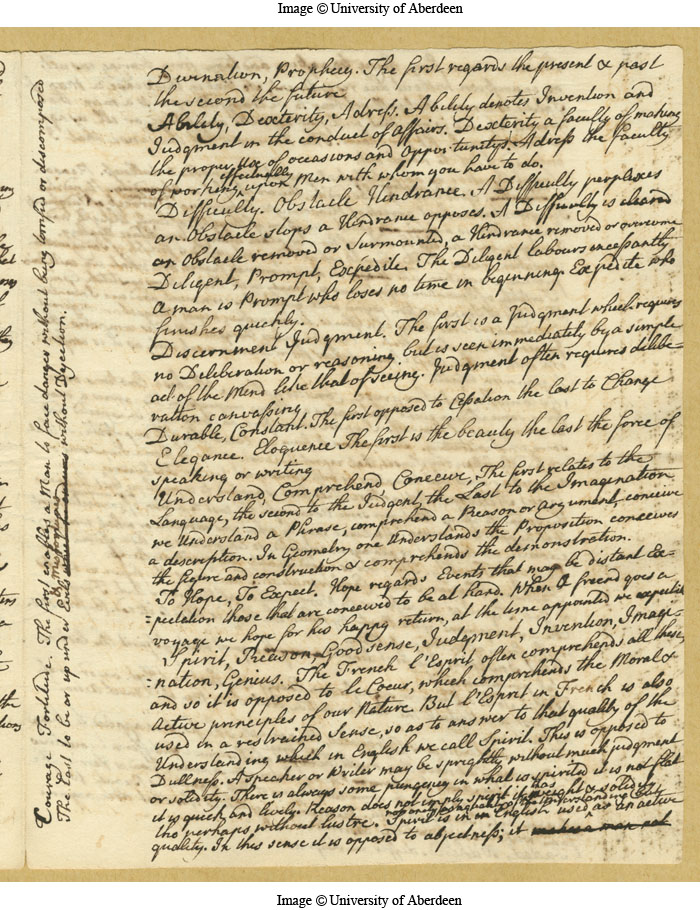 Image © University of Aberdeen
Divination, Prophecy. The first regards the present & past
the second the future
Ability, Dexterity, Adress. Ability denotes Invention and
Judgment in the conduct of affairs. Dexterity a faculty of making
the proper use of occasions and opportunitys. Adress the faculty
of working effectually upon Men with whom you have to do.
Difficulty. Obstacle Hindrance. A Difficulty perplexes
an Obstacle stops a Hindrance opposes. A Difficulty is cleared
an Obstacle removed or Surmounted, a Hindrance removed or overcome
Diligent, Prompt, Expedite. The Diligent labours incessantly
A man is Prompt who loses no time in beginning Expedite who
finishes quickly.
Discernment Judgment. The first is a Judgment which requires
no Deliberation or reasoning but is seen immediately by a simple
act of the Mind like that of seeing. Judgment often requires delibe-
ration canvassing
Durable, Constant. The first opposed to Cessation the last to Change
Elegance. Eloquence The first is the beauty the last the force of
speaking or writing
Understand, Comprehend Conceive, The first relates to the
Language, the second to the Judgent, the Last to the Imagination
we Understand a Phrase, comprehend a Reason or argument, conceive
a description. In Geometry one Understands the Proposition conceives
the figure and construction & comprehends the demonstration.
To Hope, To Expect. Hope regards Events that may be distant Ex-
=pectation those that are conceived to be at hand. When A freend goes a
voyage we hope for his happy return, at the time appointed we expect it
Spirit, Reason, Good sense, Judgment, Invention, Imagi-
=nation, Genius. The French l'Esprit often comprehends all these
and so it is opposed to le Coeur, which comprehends the Moral &
Active principles of our Nature But l'Esprit in French is also
used in a restrained Sense, so as to answer to that quality of the
Understanding which in English we call Spirit. This is opposed to
Dullness. A Speaker or Writer may be sprightly without much judgment
or solidity. There is always some pungency in what is spirited it is not flat
it is quick and lively. Reason does not imply spirit it has weight & solidity
tho perhaps without lustre. Spirit is in English used as an active
quality. In this sense it is opposed to abjectness; it makes a man not
Courage Fortitude. The first enables a Man to face danger without being terrified or discomposed
The Last to bear up under Evils without Dejection.
Image © University of Aberdeen